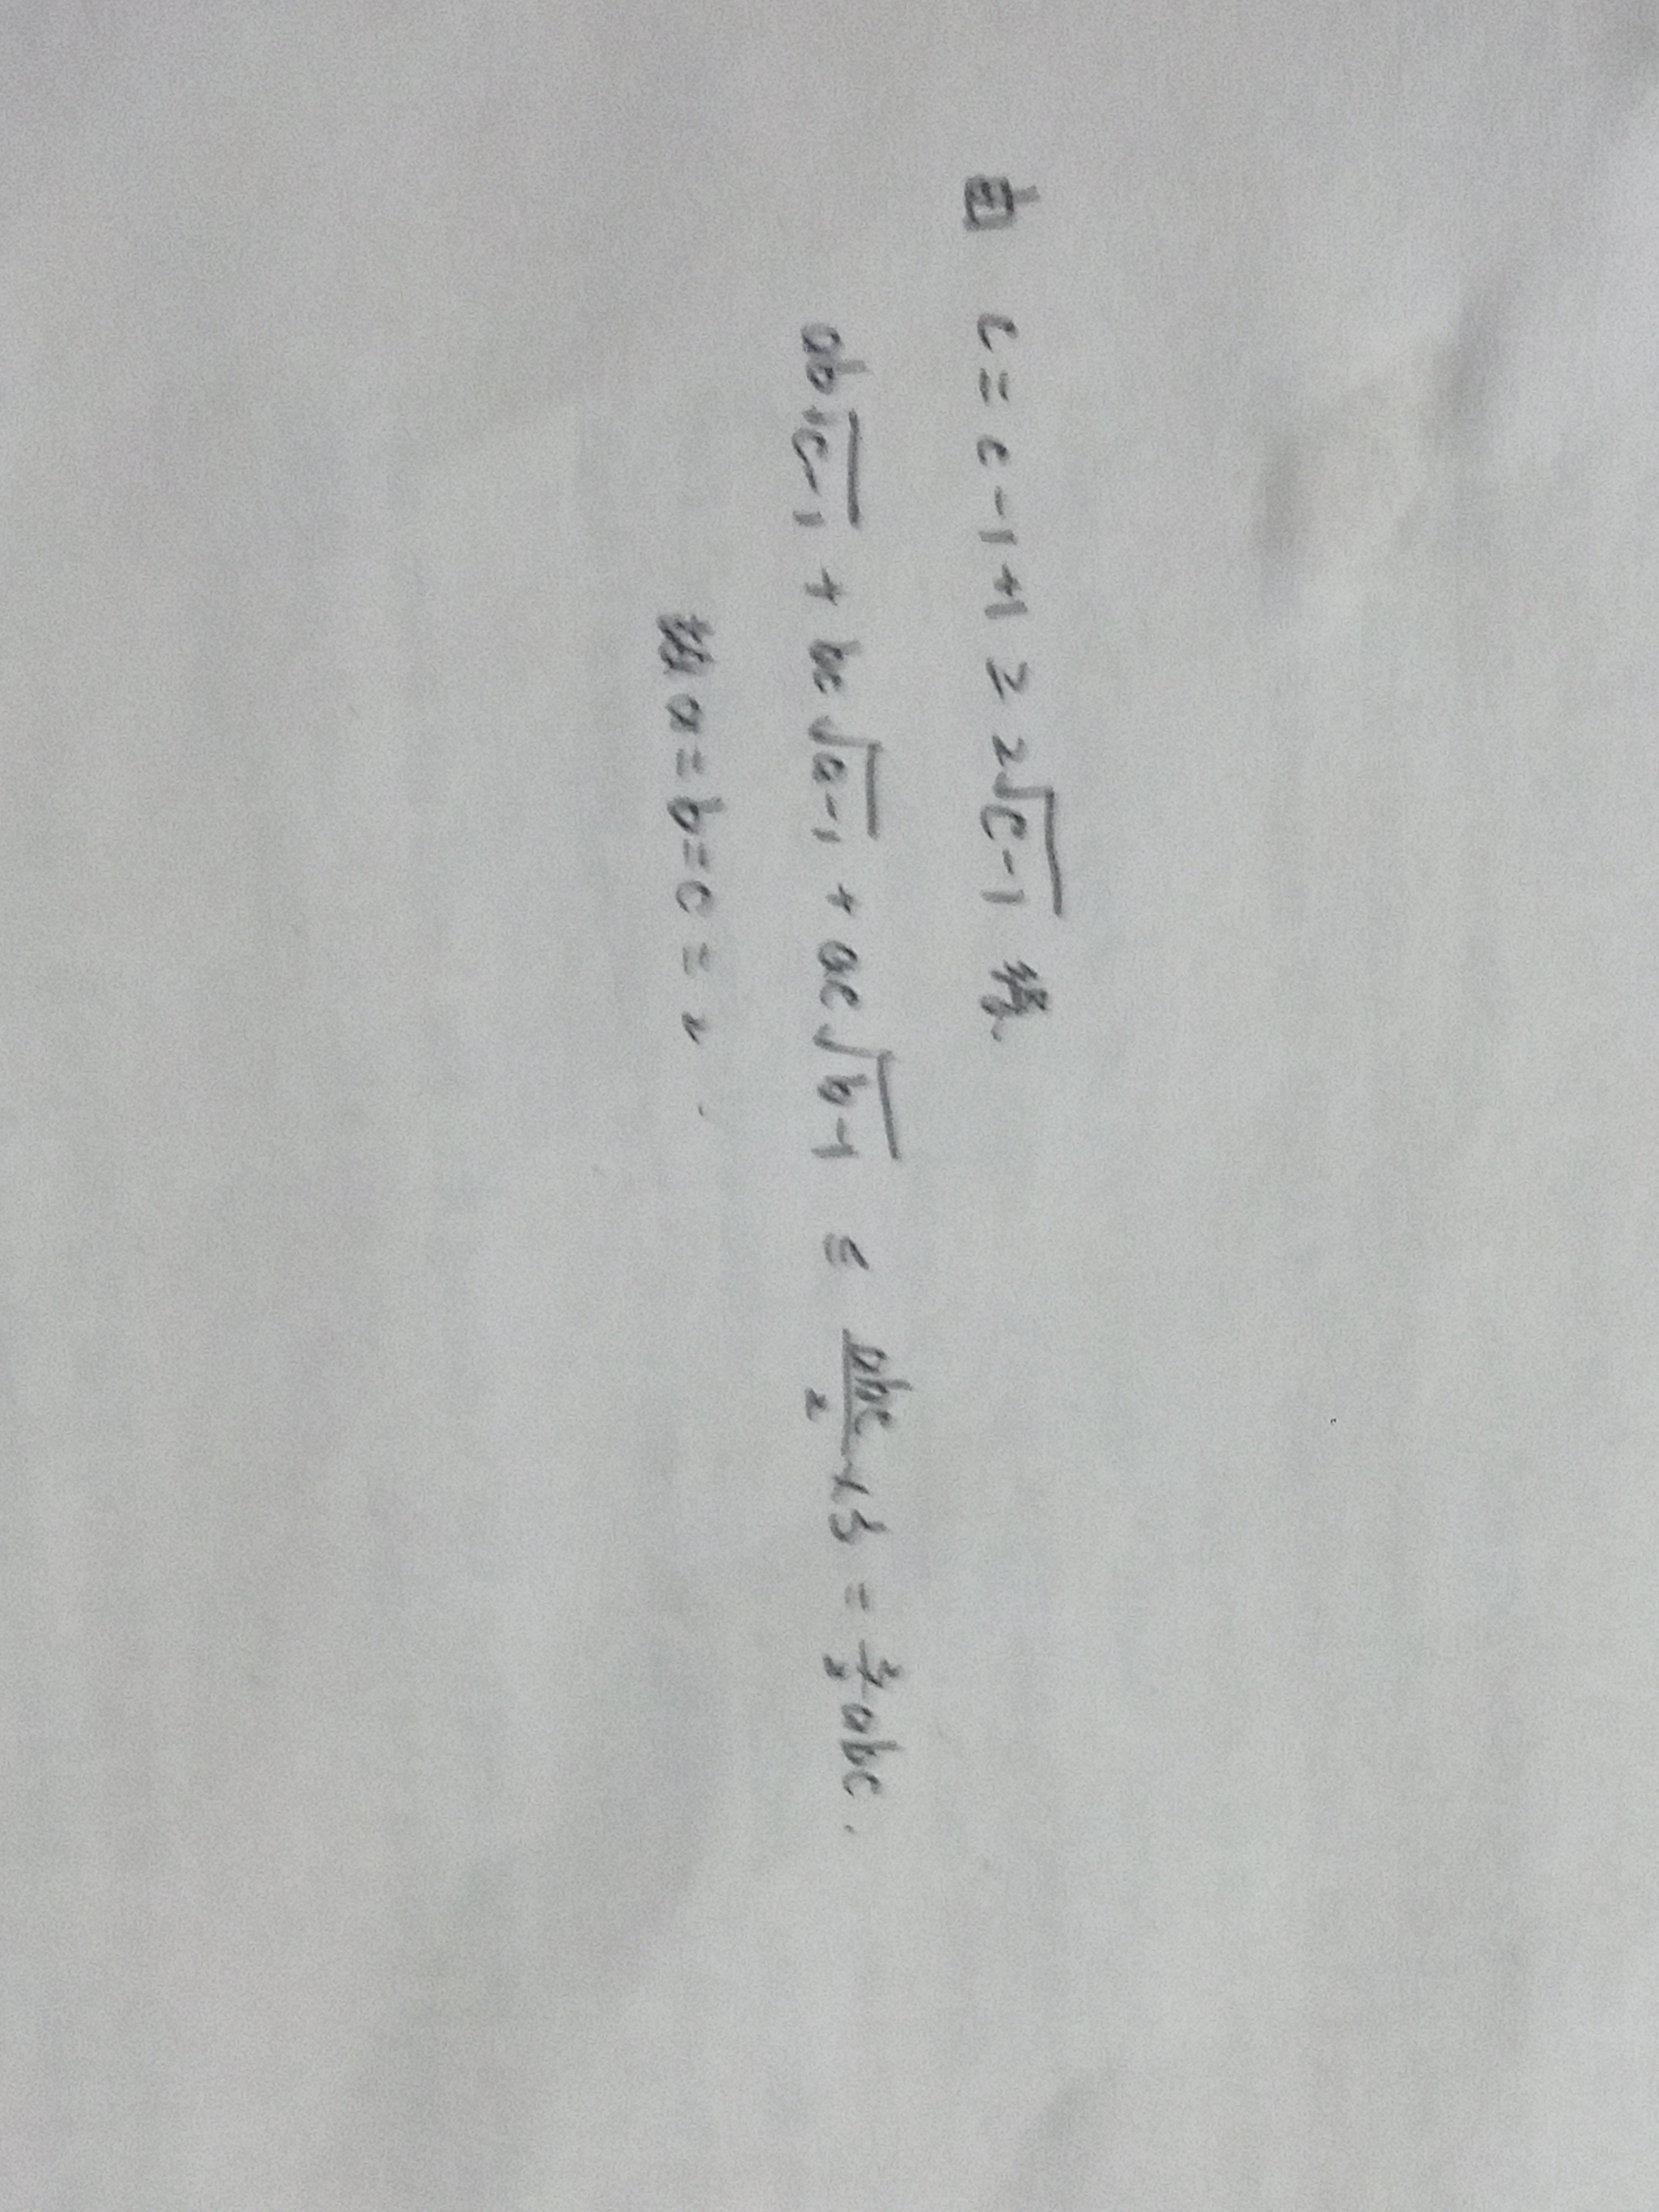 由 c = c - 1 + 1 ≥ 2√(c-1) 得.
ab√(c-1) + bc√(a-1) + ac√(b-1) ≤ abc/2 × 3 = 3/2 abc.
a = b = c = 2.